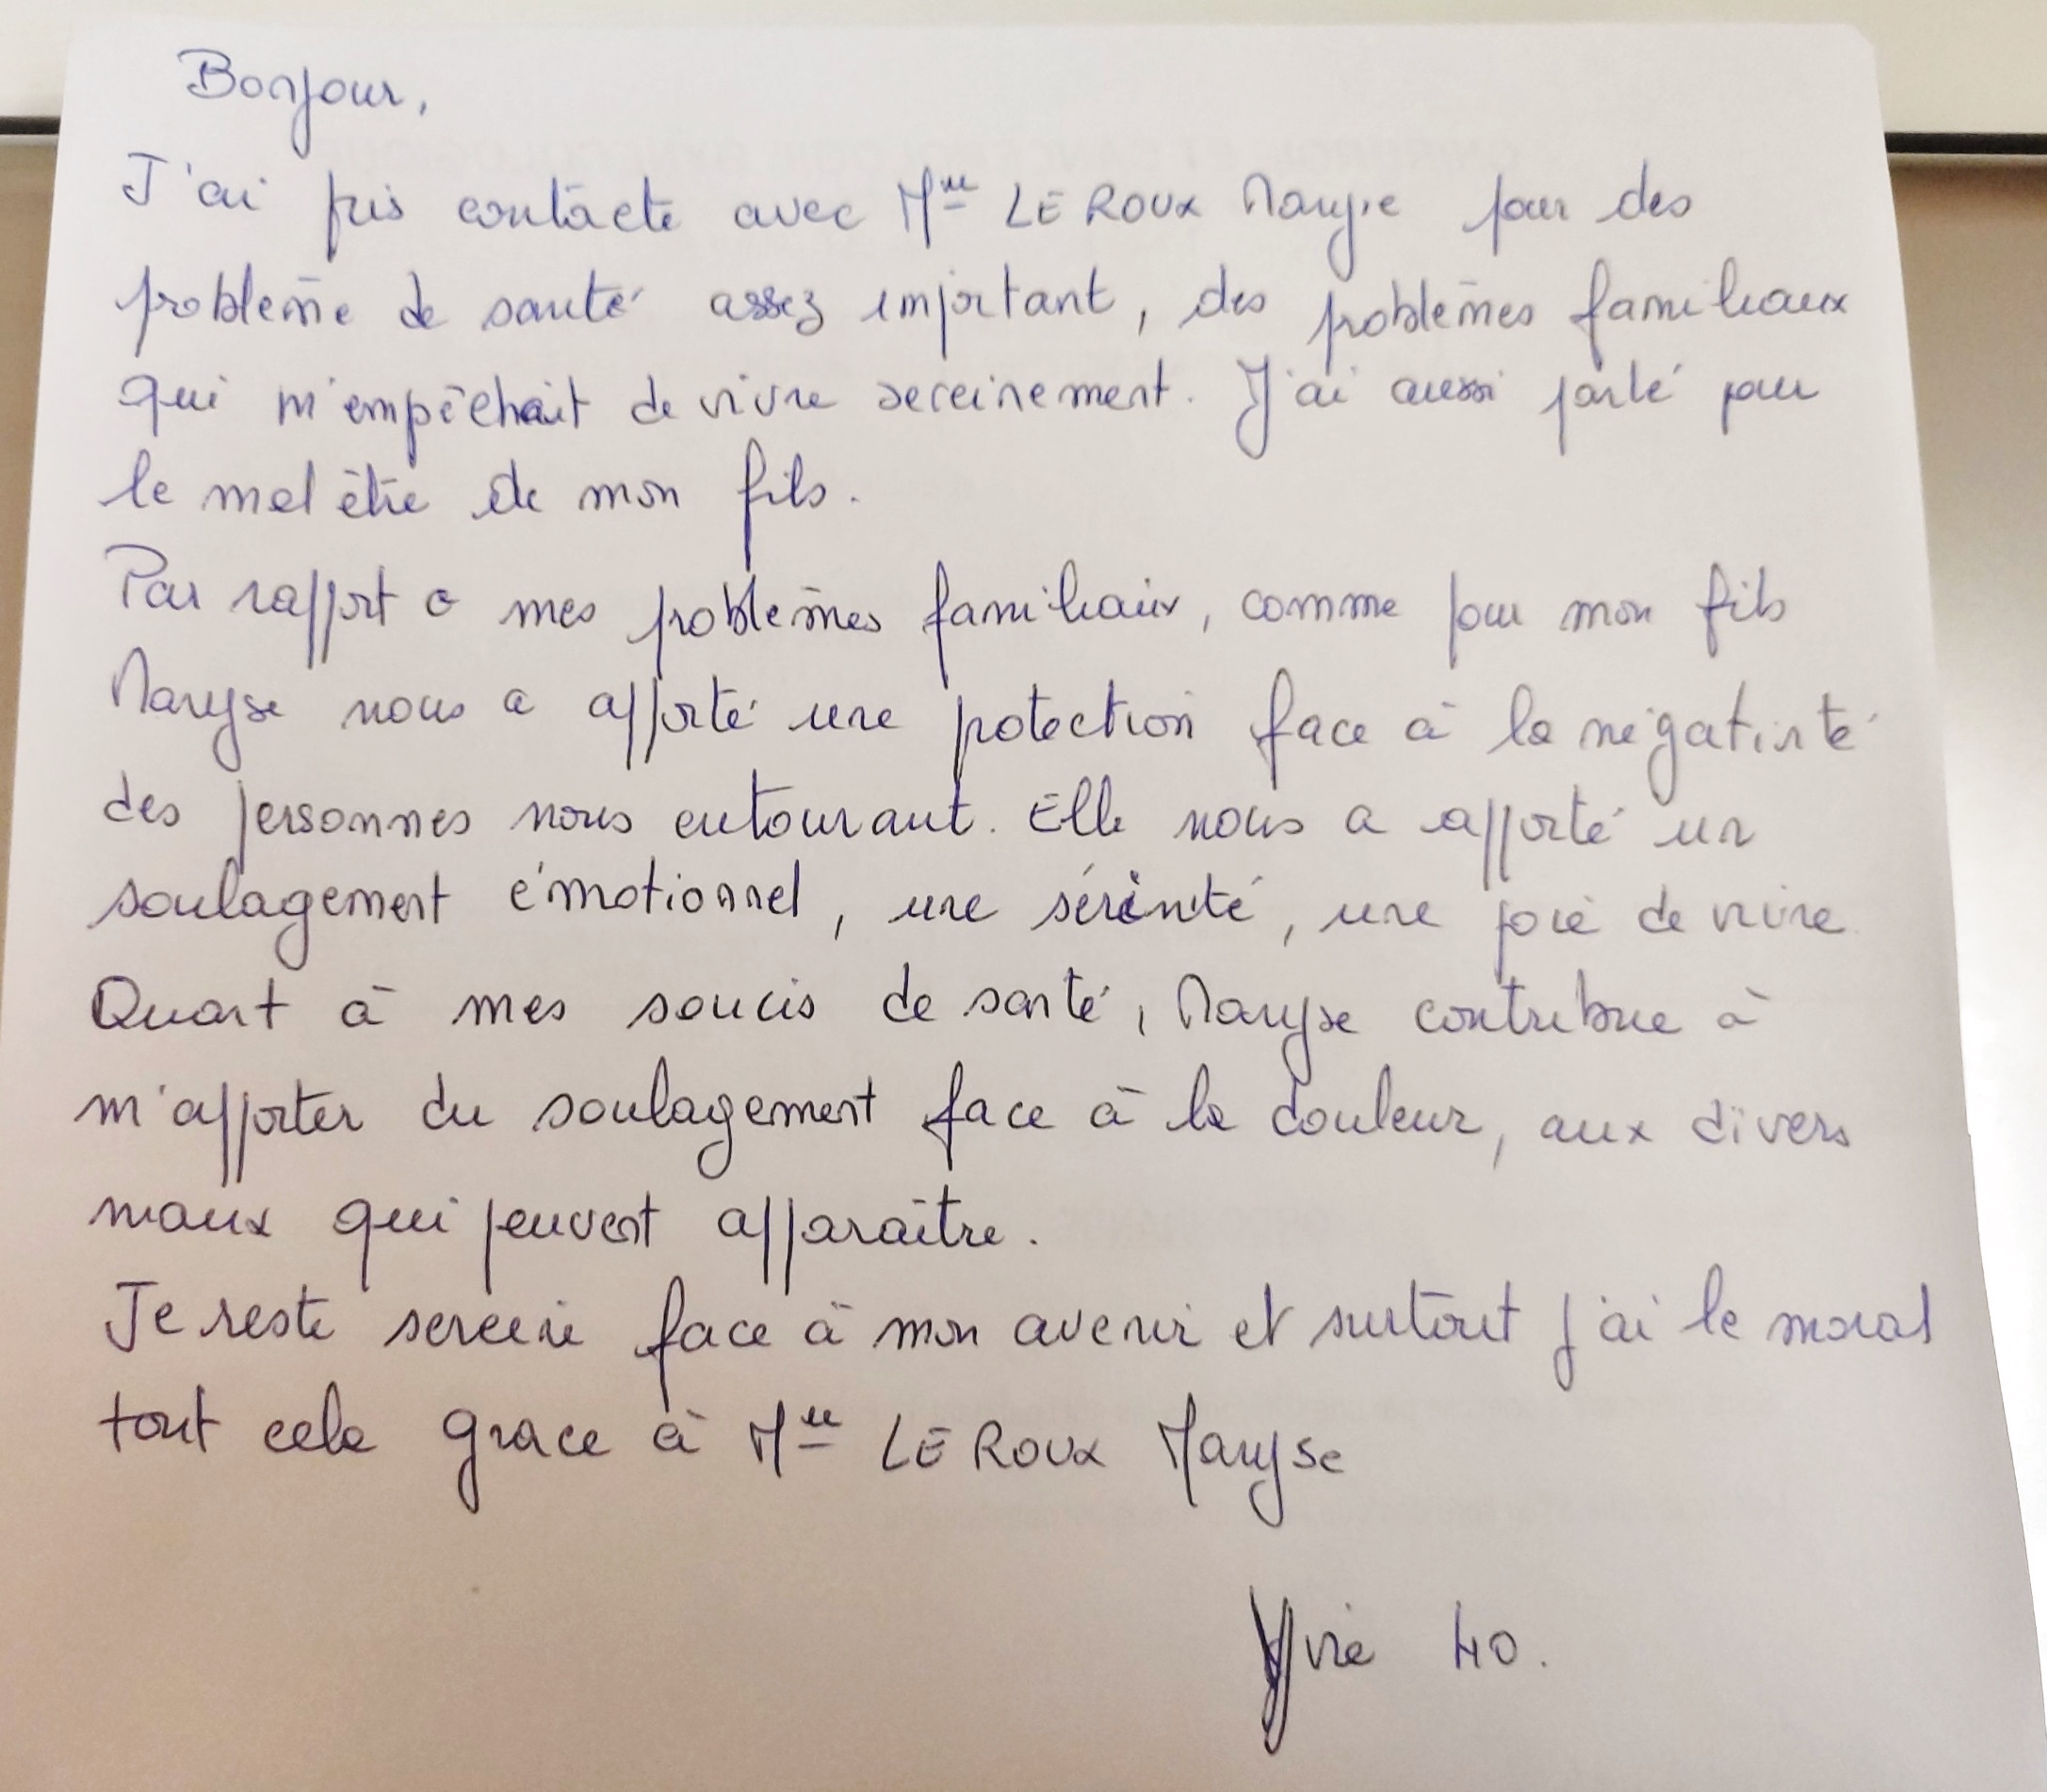 Bonjour,
J'ai pris contacte avec Mme LE ROUX Maryse pour des
problème de santé assez important, des problèmes familiaux
qui m'empêchait de vivre sereinement. J'ai aussi parlé pour
le mal être de mon fils.
Par rapport a mes problèmes familiaux, comme pour mon fils
Maryse nous a apporté une protection face à la négativité
des personnes nous entourant. Elle nous a apporté un
soulagement émotionnel, une sérénité, une joie de vivre
Quant à mes soucis de santé, Maryse contribue à
m'apporter du soulagement face à la douleur, aux divers
maux qui peuvent apparaître.
Je reste sereine face à mon avenir et surtout j'ai le moral
tout cela grace à Mme LE ROUX Maryse
40.